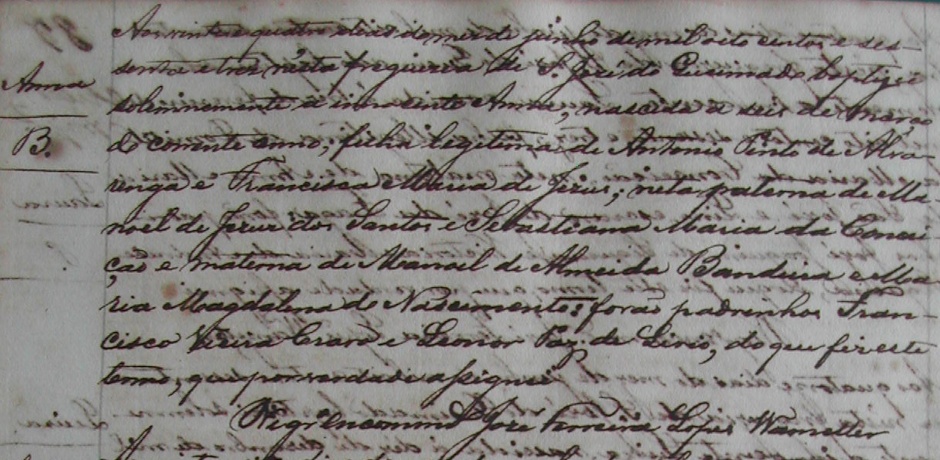 Anna
B.
Aos vinte e quatro dias do mes de junho de mil oito centos e ses-
senta e tres nesta freguezia de S. José do Queimado baptizei
solemnemente a innocente Anna, nascida a seis de março
do corrente anno; filha legitima de Antonio Pinto de Alva-
renga e Francisca Maria de Jesus; neta paterna de Ma-
noel de Jesus dos Santos e Sebastiana Maria da Concei-
ção e materna de Manoel de Almeida Bandeira e Ma-
ria Magdalena do Nascimento: forão padrinhos Fran-
cisco Vieira e Leonor Paz de Lirio, do que fiz este
termo, que por verdade assignei
José Ferreira Lopes